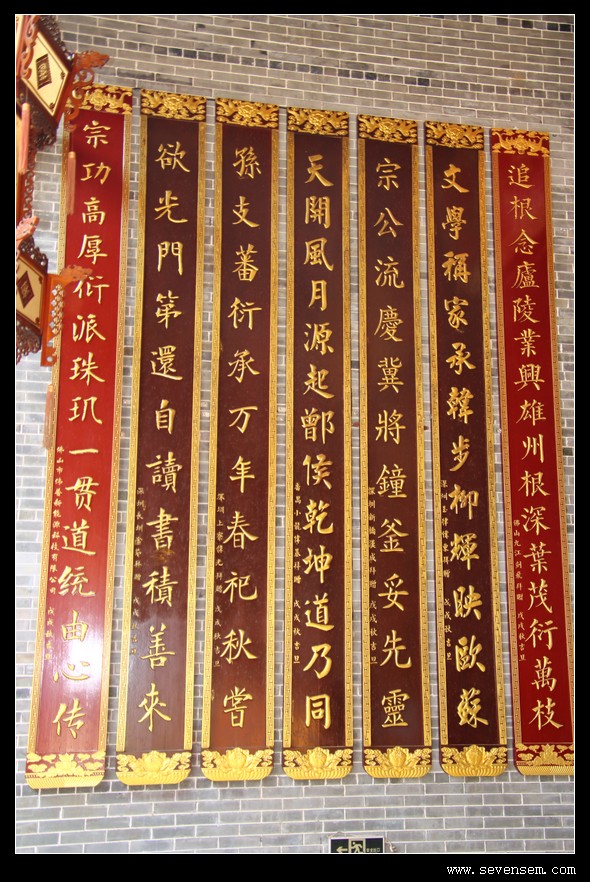 追根念廬陵業興雄州根深葉茂衍萬枝
文學稱家承韓步柳輝映歐蘇
宗公流慶冀將鐘釜妥先靈
天開風月源起鄫侯乾坤道乃同
孫支蕃衍承万年春祀秋嘗
欲光門第還自讀書積善來
宗功高厚衍派珠玑一贯道统由心传
戊戌秋吉旦
www.sevensem.com